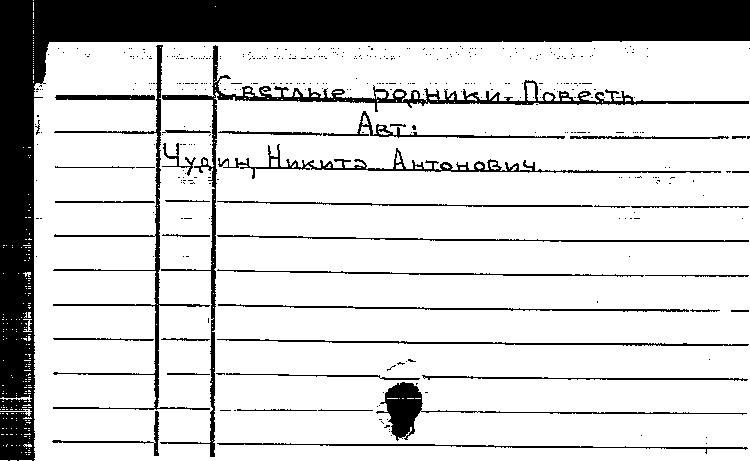 Светлые родники. Повесть
Авт:
Чудин, Никита Антонович.